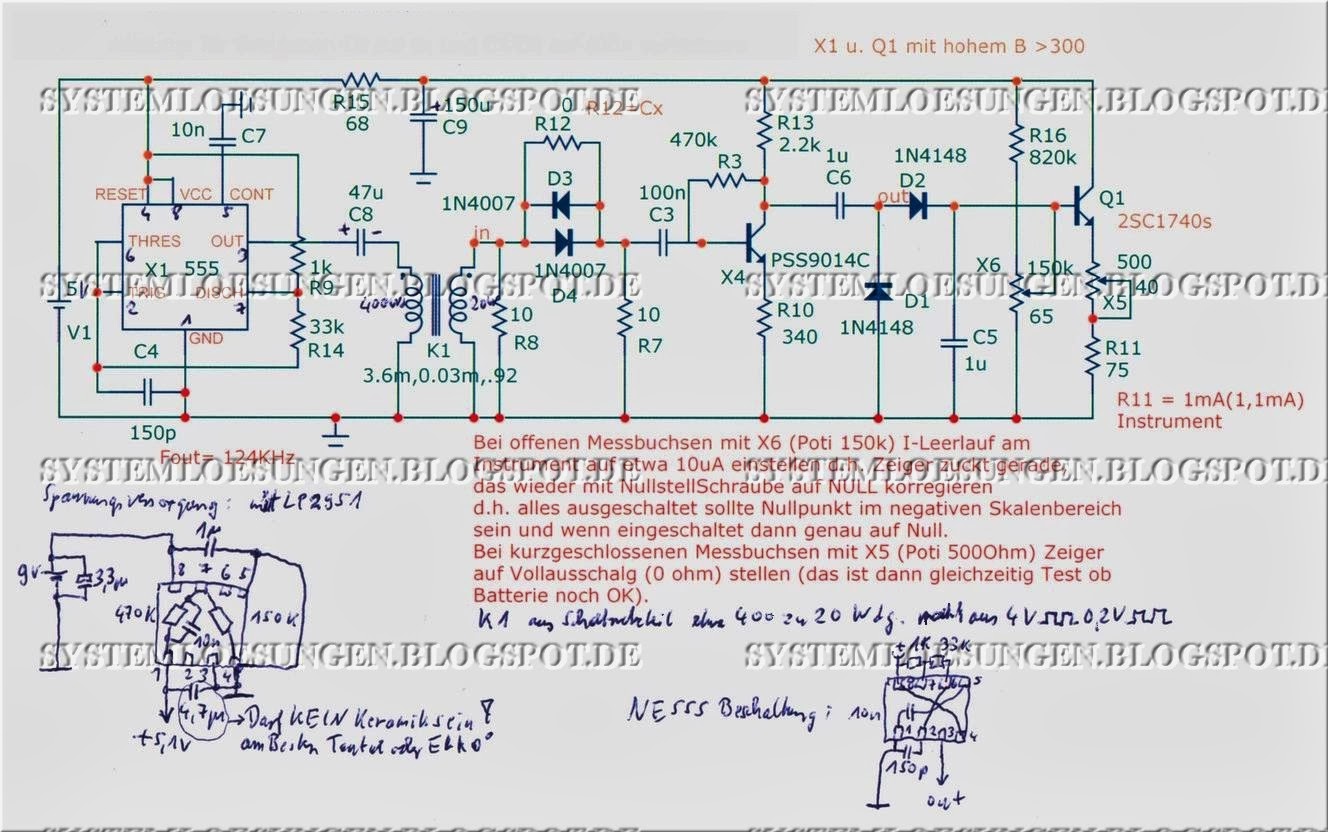 X1 u. Q1 mit hohem B >300
SYSTEMLOESUNGEN.BLOGSPOT.DE
SYSTEMLOESUNGEN.BLOGSPOT.DE
R15
68
+150u
C9
0
R12=Cx
R12
10n
C7
470k
R3
R13
2.2k
1u
C6
1N4148
D2
R16
820k
RESET
VCC
CONT
4
8
5
47u
C8
+
-
1N4007
D3
100n
C3
out
Q1
2SC1740s
THRES
OUT
6
3
X1
555
in
1N4007
D4
X4
PSS9014C
X6
150k
65
500
40
X5
5V
V1
TRIG
DISCH
2
7
1
GND
1k
R9
33k
R14
SYSTEMLOESUNGEN.BLOGSPOT.DE
SYSTEMLOESUNGEN.BLOGSPOT.DE
K1
3.6m,0.03m,.92
10
R8
10
R7
R10
340
D1
1N4148
C5
1u
R11
75
C4
150p
Fout= 124KHz
R11 = 1mA(1,1mA)
Instrument
Bei offenen Messbuchsen mit X6 (Poti 150k) I-Leerlauf am
Instrument auf etwa 10uA einstellen d.h. Zeiger zuckt gerade,
das wieder mit NullstellSchraube auf NULL korregieren
d.h. alles ausgeschaltet sollte Nullpunkt im negativen Skalenbereich
sein und wenn eingeschaltet dann genau auf Null.
Bei kurzgeschlossenen Messbuchsen mit X5 (Poti 500Ohm) Zeiger
auf Vollausschalg (0 ohm) stellen (das ist dann gleichzeitig Test ob
Batterie noch OK).
SYSTEMLOESUNGEN.BLOGSPOT.DE
SYSTEMLOESUNGEN.BLOGSPOT.DE
Spannungsversorgung: mit LP2951
1µ
9V
33µ
8 7 6 5
470K
150K
10n
1 2 3 4
4,7µ
+5,1V
Darf KEIN Keramik sein!
am Besten Tantal oder ELKO
K1 aus Schaltnetzteil etwa 400 zu 20 Wdg. macht aus 4V 0,2V
SYSTEMLOESUNGEN.BLOGSPOT.DE
SYSTEMLOESUNGEN.BLOGSPOT.DE
NE555 Beschaltung:
+ 1K 33K
8 7 6 5
10n
1 2 3 4
150p
out
SYSTEMLOESUNGEN.BLOGSPOT.DE
SYSTEMLOESUNGEN.BLOGSPOT.DE